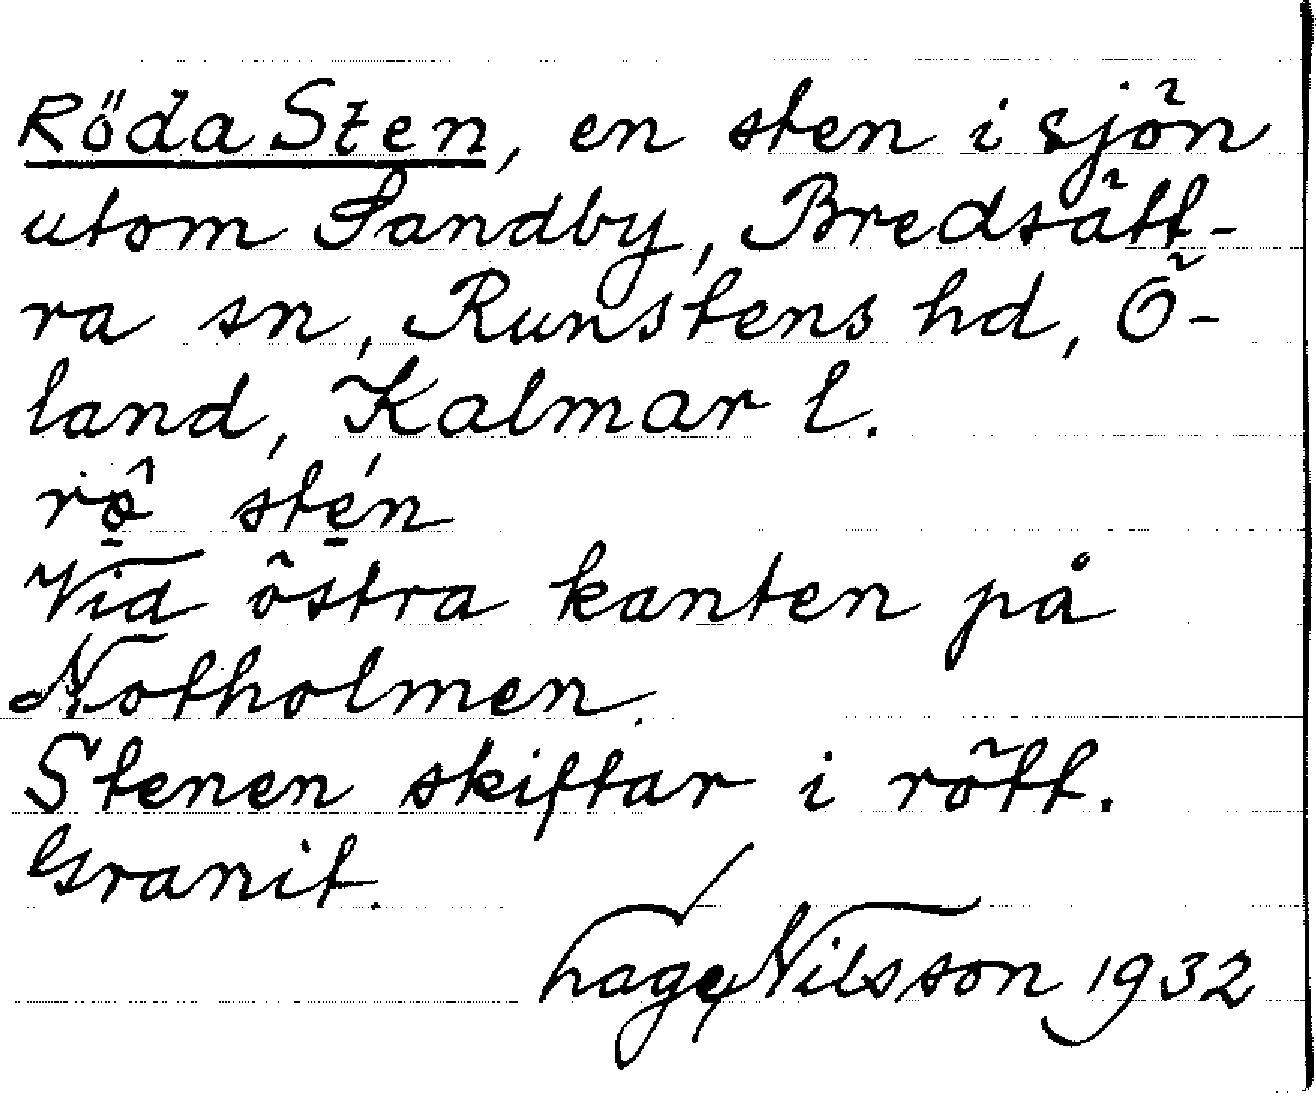 Röda Sten, en sten i sjön
utom Sandby, Bredsätt-
ra sn, Runstens hd, Ö-
land, Kalmar l.
rö̂ stén
Vid östra kanten på
Notholmen.
Stenen skiftar i rött.
Granit.
Hage Nilsson 1932